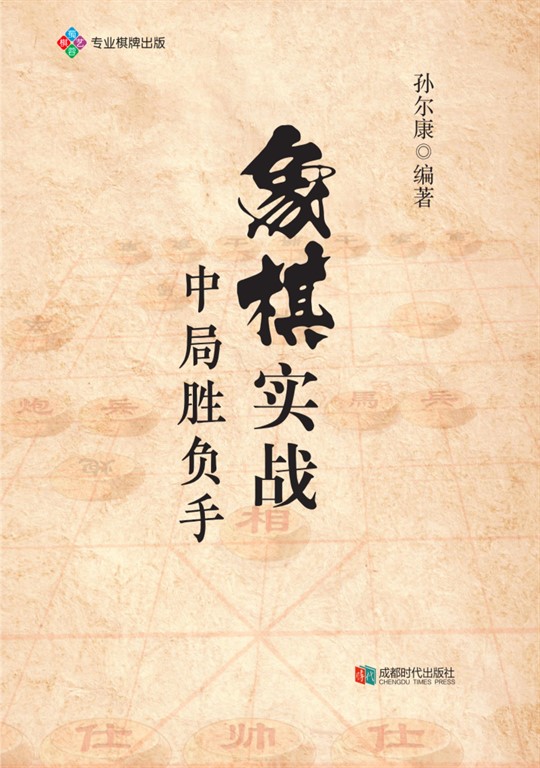 棋艺
专业棋牌出版
孙尔康◎编著
象棋实战
中局胜负手
相
炮
兵
馬
兵
时代
成都时代出版社
CHENGDU TIMES PRESS
仕
帅
仕